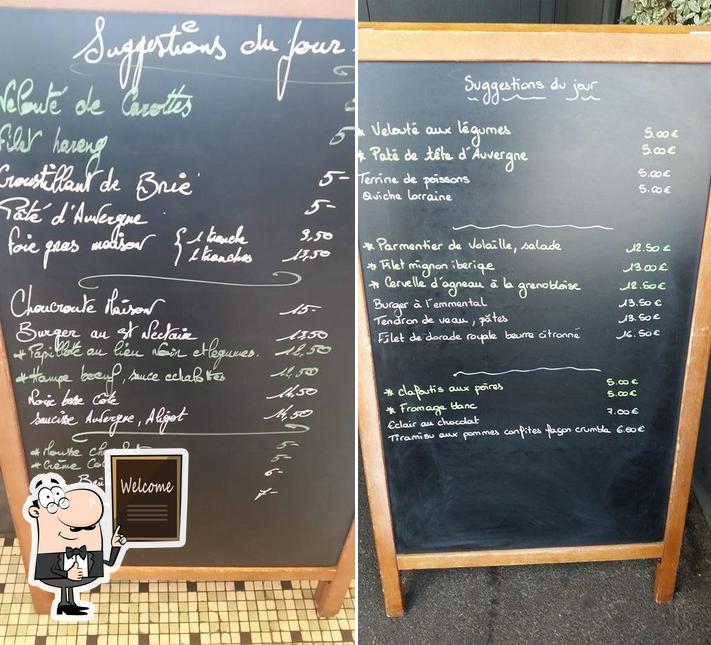 Suggestions du jour
Velouté de Carottes 5
Filet hareng 5
Croustillant de Brie 5-
Pâté d'Auvergne 5-
foie gras maison { 1 tranche 9,50
2 tranches 17,50
Choucroute Maison 15-
Burger au St Nectaire 13,50
* Papillote au lieu noir et légumes. 12,50
* Hampe boeuf, sauce echalottes 12,50
basse côte 14,50
saucisse Auvergne, Aligot 14,50
* Mousse 5-
* Crème 5-
6-
7-
Welcome
Suggestions du jour
* Velouté aux légumes 5.00€
* Paté de tête d'Auvergne 5.00€
Terrine de poissons 5.00€
Quiche lorraine 5.00€
* Parmentier de Volaille, salade 12.50€
* Filet mignon iberique 13.00€
* Cervelle d'agneau à la grenobloise 12.50€
Burger à l'emmental 13.50€
Tendron de veau, pâtes 13.50€
Filet de dorade royale beurre citronné 16.50€
* clafoutis aux poires 5.00€
* Fromage blanc 5.00€
Eclair au chocolat 7.00€
Tiramisu aux pommes confites façon crumble 6.00€